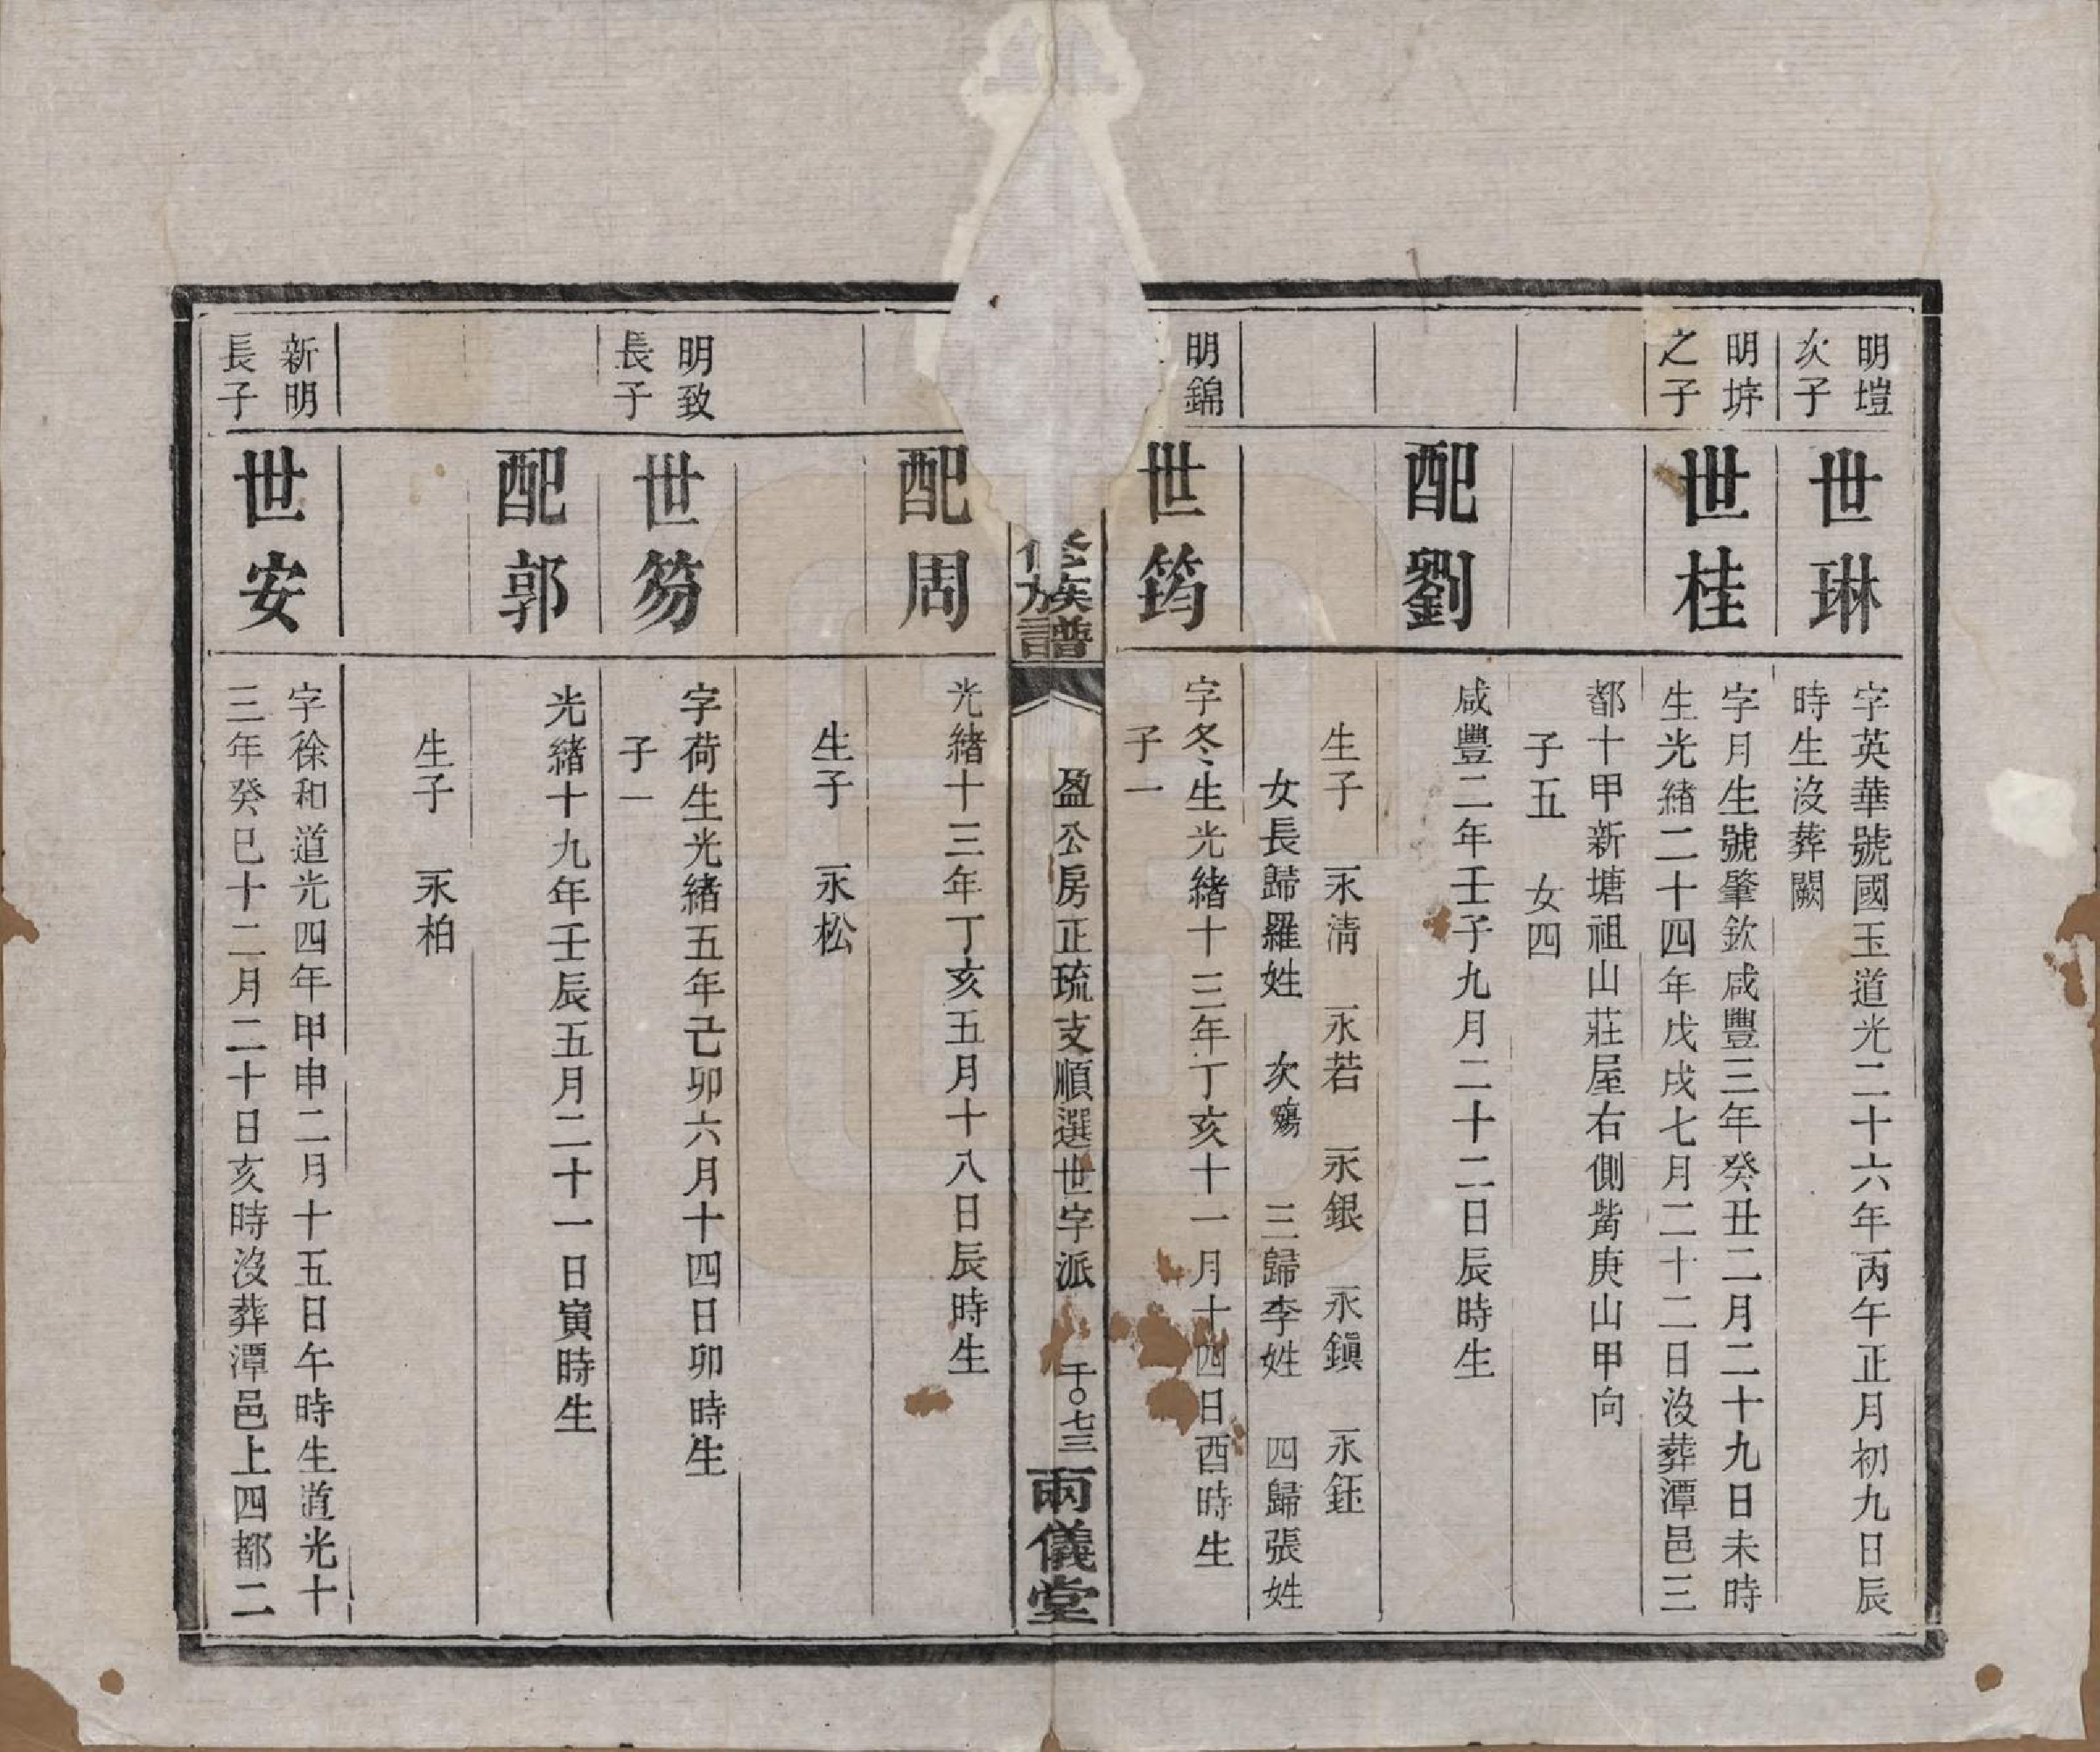 明塏
次子
世琳
字英華號國玉道光二十六年丙午正月初九日辰
時生沒葬闕
明㙊
之子
世桂
字月生號肇欽咸豐三年癸丑二月二十九日未時
生光緒二十四年戊戌七月二十二日沒葬潭邑三
都十甲新塘祖山莊屋右側訾庚山甲向
子五 女四
配劉
咸豐二年壬子九月二十二日辰時生
生子 永清 永若 永銀 永鎭 永鈺
女長歸羅姓 次殤 三歸李姓 四歸張姓
明錦
世筠
字冬生光緒十三年丁亥十一月十四日酉時生
子一
修族譜
盈公房正琉支順選世字派
千〇七三
兩儀堂
配周
光緒十三年丁亥五月十八日辰時生
生子 永松
明致
長子
世笏
字荷生光緒五年己卯六月十四日卯時生
子一
配郭
光緒十九年壬辰五月二十一日寅時生
生子 永柏
新明
長子
世安
字徐和道光四年甲申二月十五日午時生道光十
三年癸巳十二月二十日亥時沒葬潭邑上四都二